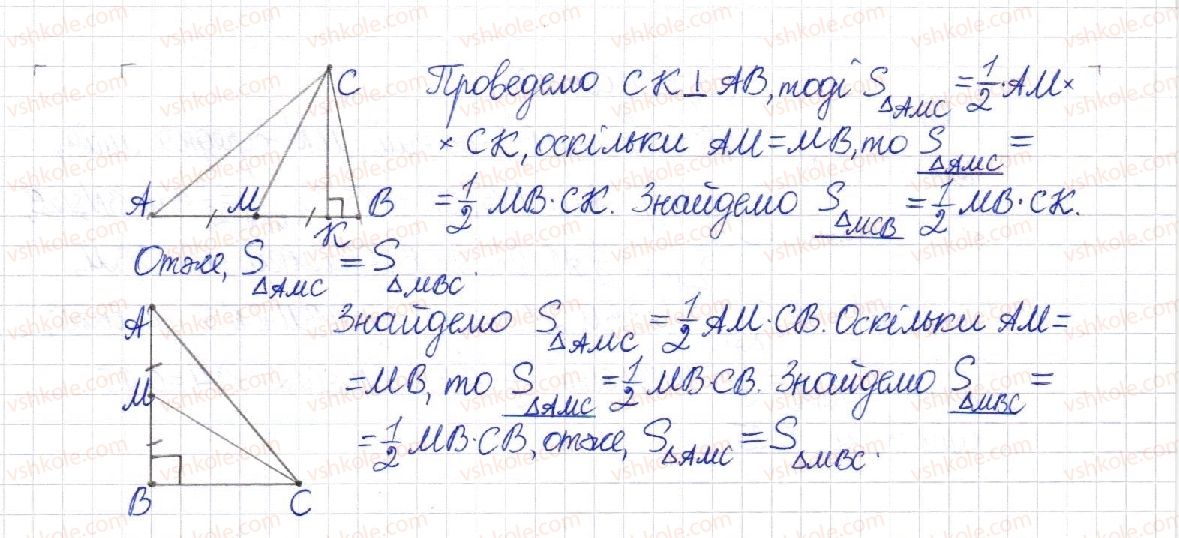 C Проведемо CK⊥AB, тоді S△AMC = 1/2·AM×
× CK, оскільки AM=MB, то S△AMC =
A M K B = 1/2 MB·CK. Знайдемо S△MCB = 1/2 MB·CK.
Отже, S△AMC = S△MBC.
A Знайдемо S△AMC = 1/2 AM·CB. Оскільки AM=
M =MB, то S△AMC = 1/2 MB·CB. Знайдемо S△MBC =
= 1/2 MB·CB, отже, S△AMC = S△MBC.
B C
vshkole.com